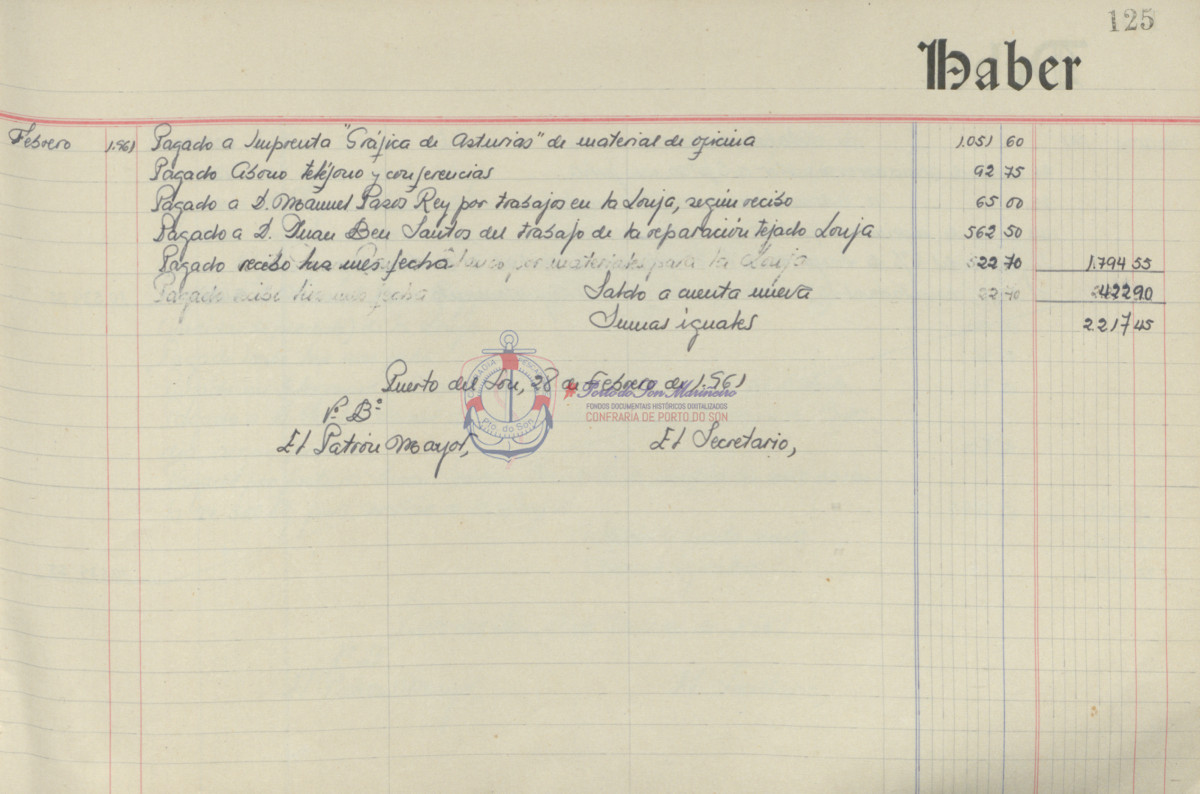 125
Haber
Febrero 1.961 Pagado a Imprenta "Gráfica de Asturias" de material de oficina 1.051 60
Pagado Abono teléfono y conferencias 92 75
Pagado a D. Manuel Pazos Rey por trabajos en la Lonja, según recibo 65 00
Pagado a D. Juan Ben Santos del trabajo de la reparación tejado Lonja 562 50
Pagado recibo luz mes fecha por materiales para la Lonja 22 70 1.794 55
Pagado recibo luz mes fecha Saldo a cuenta nueva 422 90
Sumas iguales 2.217 45
Puerto del Son, 28 de Febrero de 1.961
Vº Bº
El Patrón Mayor, El Secretario,
Pto. do Son
Porto do Son Mariñeiro
FONDOS DOCUMENTAIS HISTÓRICOS DIXITALIZADOS
CONFRARÍA DE PORTO DO SON